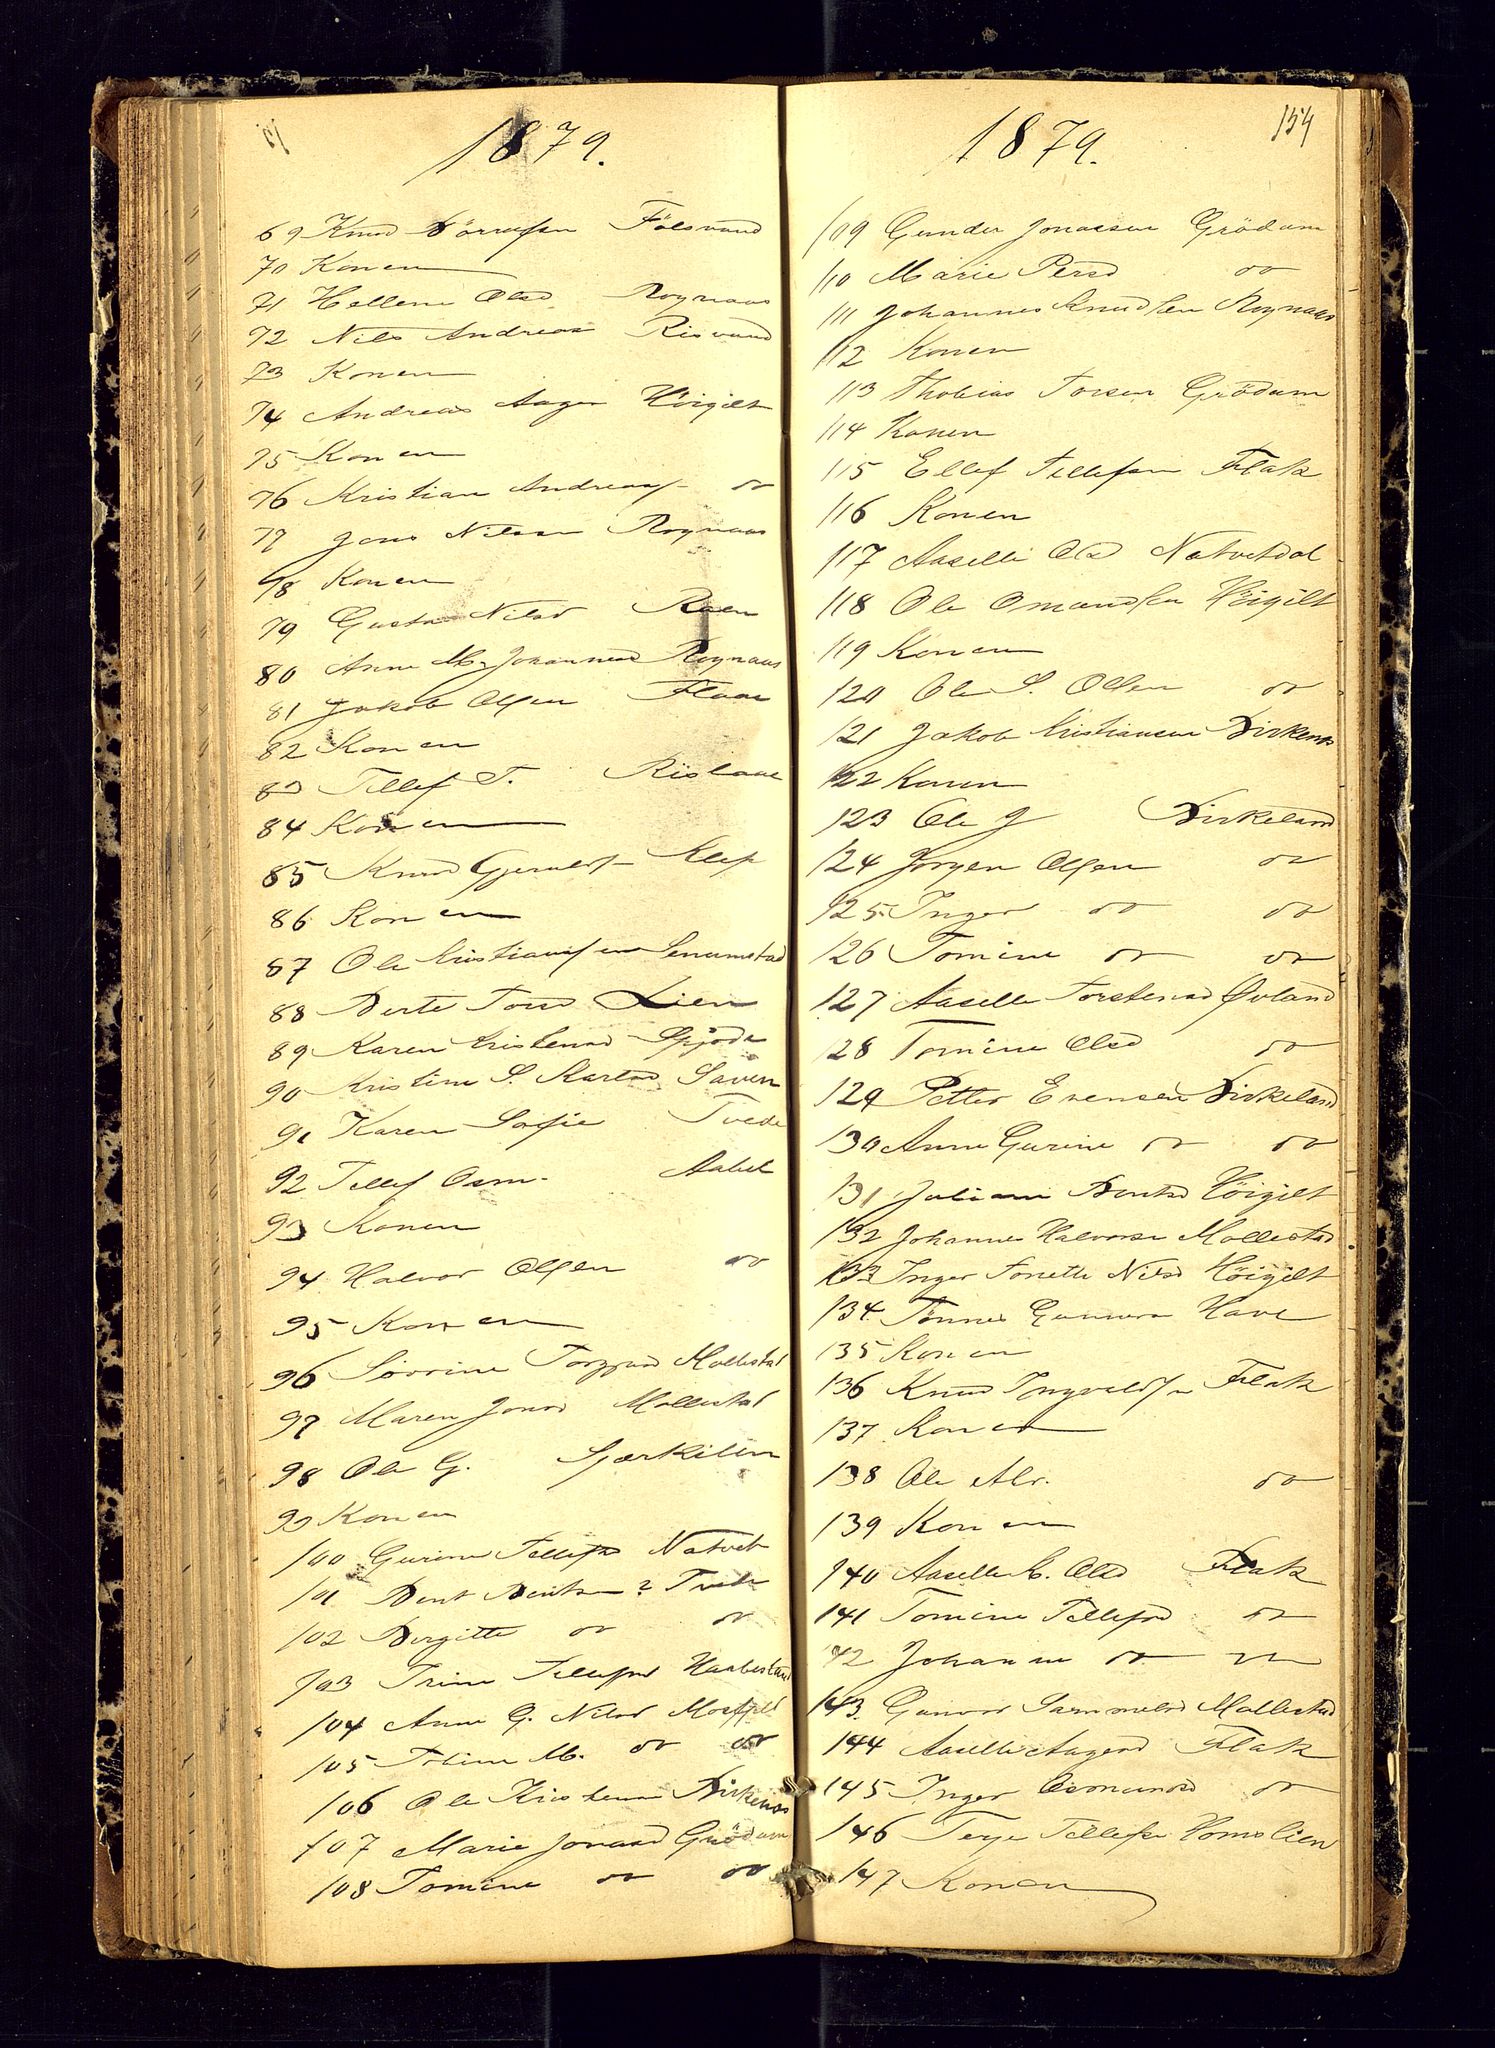 1879.
69 Knud Børresen Fölsvand
70 Konen
71 Hellene Olsd. Roynaas
72 Nils Andreas Risvand
73 Konen
74 Andreas Aagen Höigilt
75 Konen
76 Kristian Andreas do
77 Jens Nilsen Roynaas
78 Konen
79 Gusta Nilsd Roen
80 Anne M. Johannesd Roynaas
81 Jakob Olsen Flaae
82 Konen
83 Tellef T. Rislaae
84 Konen
85 Knud Gjeruldf Klep
86 Konen
87 Ole Kristiansen Senumstad
88 Berte Torsd Lien
89 Karen Kristensd
90 Kristine S. Larsd
91 Karen Sofie Tvede
92 Tellef Osm. Aabel
93 Konen
94 Halvor Olsen do
95 Konen
96 Sørrine Torgjusd Mollestad
97 Maren Jonsd Mollestad
98 Ole G. Sjærkilen
99 Konen
100 Gurine Tellefsd Natvet
101 Bent Bentsen 2 Tvede
102 Birgitte do do
103 Trine Tellefsd
104 Anne G. Nilsd Mosfjeld
105 Tobine M. do do
106 Ole Kristensen Birkenes
107 Marie Jonasd Grödum
108 Tomine do do
154
1879.
109 Gunder Jonassen Grödum
110 Marie Persd do
111 Johannes Knudsen Roynaas
112 Konen
113 Thobias Torsen Grödum
114 Konen
115 Ellef Tellefsen Flak
116 Konen
117 Aaselle Olsd Natvetdal
118 Ole Omundsen Höigilt
119 Konen
120 Ole S. Olsen do
121 Jakob Kristiansen Birkenes
122 Konen
123 Ole J Birkeland
124 Jörgen Olsen do
125 Inger do do
126 Tomine do do
127 Aaselle Torstensd Øvland
128 Tomine Olsd do
129 Petter Evensen Birkeland
130 Anne Gurine do do
131 Juliane Bentsd Höigilt
132 Johannes Halvorsen Mollestad
133 Inger Tonette Nilsd Höigilt
134 Tönnes Gunnarsen Have
135 Konen
136 Knud Ingvaldsen Flak
137 Konen
138 Ole Alv. do
139 Konen
140 Aaselle C. Olsd Flak
141 Tomine Tellefsd do
142 Johanne do do
143 Gunvor Sammelsd Mollestad
144 Aaselle Aagesd Flak
145 Inger Osmundsd do
146 Terje Tellefsen Homslien
147 Konen